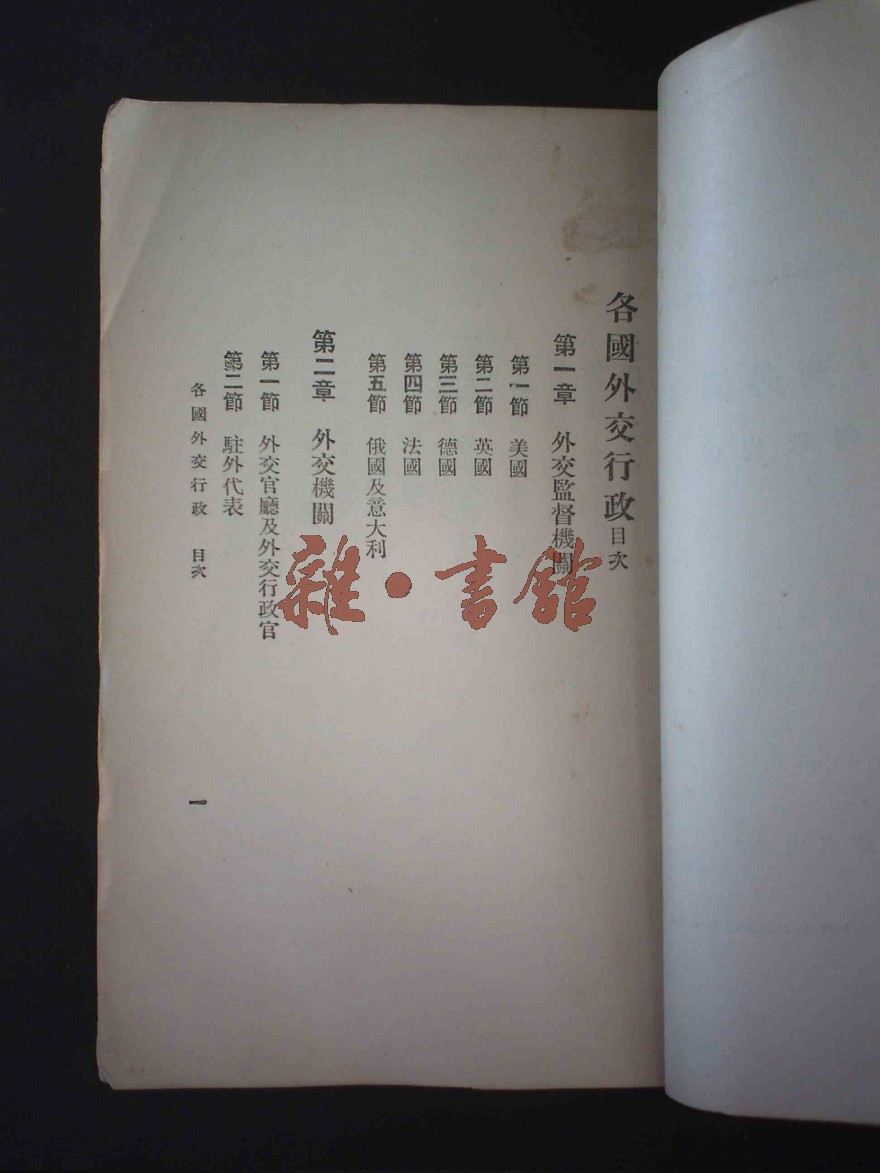 各國外交行政目次
第一章 外交監督機關
第一節 美國
第二節 英國
第三節 德國
第四節 法國
第五節 俄國及意大利
第二章 外交機關
第一節 外交官廳及外交行政官
第二節 駐外代表
各國外交行政 目次
一
雜·書館